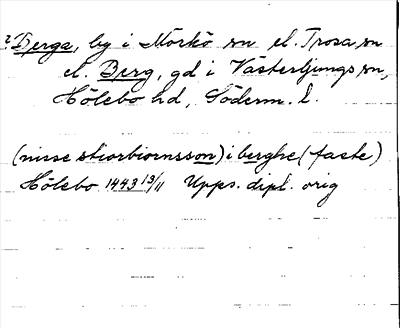 ? Berga, by i Mörkö sn el. Trosa sn
el. Berg, gd i Västerljungs sn,
Hölebo hd, Söderm. l.
(nisse skiorbiornsson) i berghe (faste)
Hölebo 1443 13/11 Upps. dipl. orig